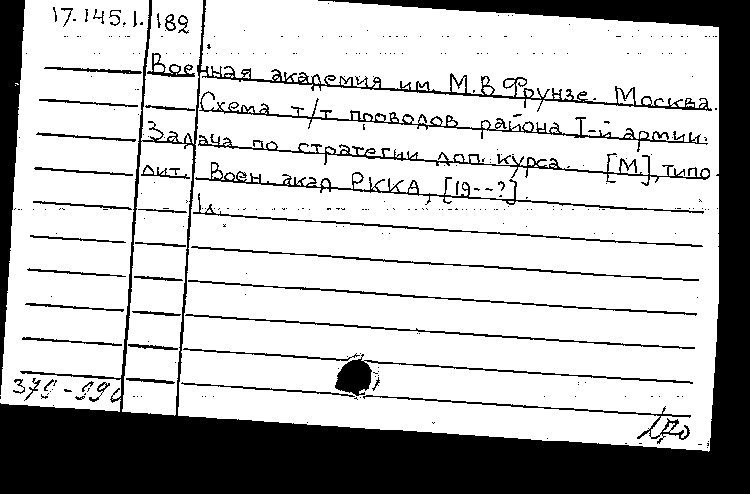 17.145.1.182
Военная академия им. М.В Фрунзе. Москва.
Схема т/т проводов района I-й армии.
Задача по стратегии доп. курса. [М.], типо-
лит. Воен. акад РККА, [19--?].
1л.